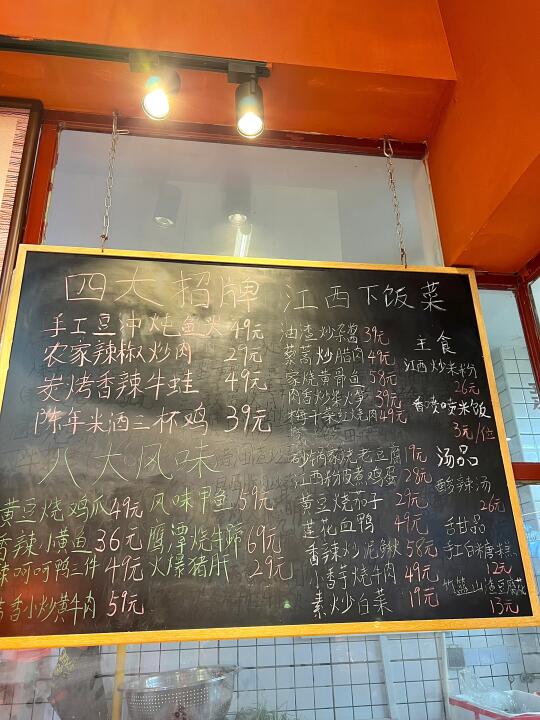 四大招牌
手工豆冲炖鱼头 49元
农家辣椒炒肉 29元
炭烤香辣牛蛙 49元
陈年米酒三杯鸡 39元
八大风味
黄豆烧鸡爪 49元 风味甲鱼 59元
香辣小黄鱼 36元 鹰潭烧牛蹄 69元
呵呵鸭三件 49元 火爆猪肝 29元
香小炒黄牛肉 59元
江西下饭菜
油渣炒 39元
藜蒿炒腊肉 49元
家烧黄骨鱼 58元
39元
梅干菜红烧肉 49元
砂锅家烧老豆腐 19元
江西粉皮煮鸡蛋 28元
黄豆烧茄子 29元
莲花血鸭 49元
香辣炒泥鳅 58元
小香芋烧牛肉 49元
素炒白菜 19元
主食
江西炒米粉
26元
香喷喷米饭
3元/位
汤品
酸辣汤
26元
甜品
手工白糖糕
12元
竹篮山渣豆腐花
13元